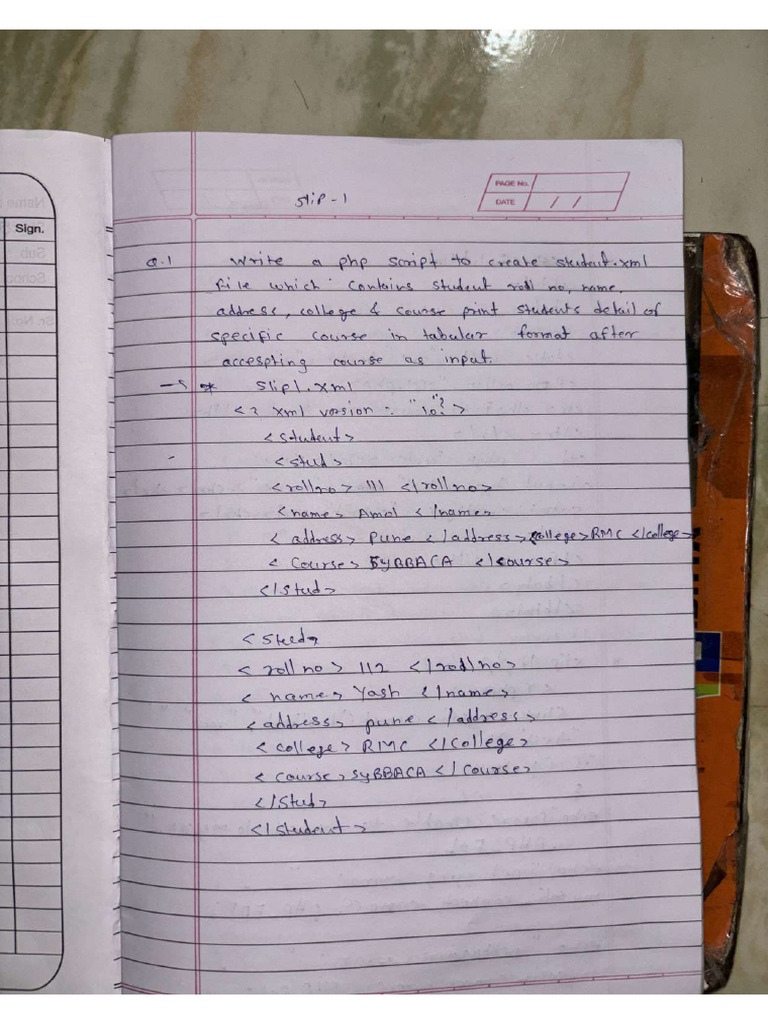 Sign.
PAGE No.
DATE / /
Slip-1
Q.1 Write a php script to create student.xml
file which contains student roll no, name,
address, college & course print students detail of
specific course in tabular format after
accespting course as input.
* slip1.xml
<? xml version : "1.0"?>
<student>
<stud>
<rollno> 111 </rollno>
<name> Amol </name>
<address> Pune </address> <college> RMC </college>
<Course> SYBBACA </course>
</stud>
<stud>
<roll no> 112 </rollno>
<name> Yash </name>
<address> pune </address>
<college> RMC </college>
<course> SyBBACA </course>
</stud>
</student>